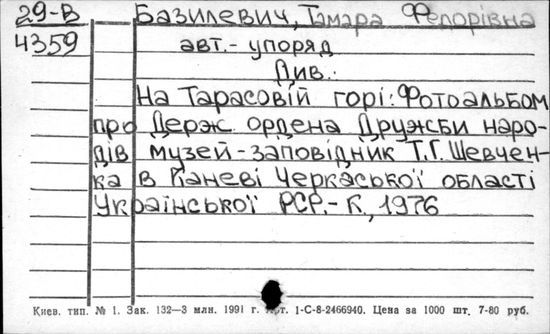 29-В Базилевич, Тамара Федорівна
4359 авт.- упоряд
Див.:
На Тарасовій горі: Фотоальбом
про Держ. ордена Дружби наро-
дів музей-заповідник Т.Г. Шевчен-
ка в Каневі Черкаської області
Української РСР.- К., 1976
Киев. тип. № 1. Зак. 132—3 млн. 1991 г. Арт. 1-С-8-2466940. Цена за 1000 шт. 7-80 руб.